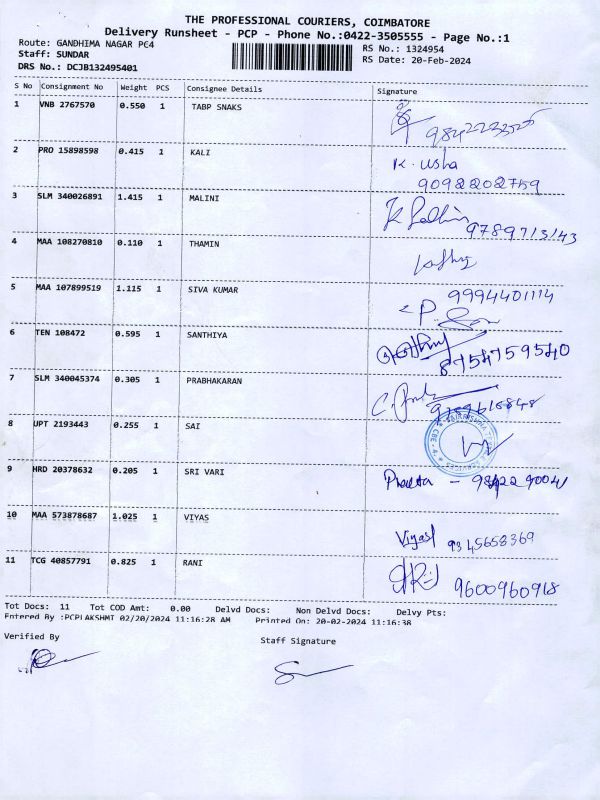 THE PROFESSIONAL COURIERS, COIMBATORE
Delivery Runsheet - PCP - Phone No.:0422-3505555 - Page No.:1
Route: GANDHIMA NAGAR PC4
RS No.: 1324954
Staff: SUNDAR
RS Date: 20-Feb-2024
DRS No.: DCJB132495401
S No Consignment No Weight PCS Consignee Details Signature
1 VNB 2767570 0.550 1 TABP SNAKS
2 PRO 15898598 0.415 1 KALI K. Usha
9092202759
3 SLM 340026891 1.415 1 MALINI
4 MAA 108270810 0.110 1 THAMIN
5 MAA 107899519 1.115 1 SIVA KUMAR 9994401114
6 TEN 108472 0.595 1 SANTHIYA 8754759540
7 SLM 340045374 0.305 1 PRABHAKARAN
8 UPT 2193443 0.255 1 SAI
9 HRD 20378632 0.205 1 SRI VARI
10 MAA 573878687 1.025 1 VIYAS Viyas 9345658369
11 TCG 40857791 0.825 1 RANI 9600960918
Tot Docs: 11 Tot COD Amt: 0.00 Delvd Docs: Non Delvd Docs: Delvy Pts:
Entered By :PCPLAKSHMT 02/20/2024 11:16:28 AM Printed On: 20-02-2024 11:16:38
Verified By
Staff Signature